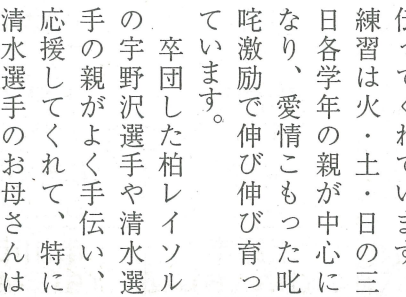 伎ってくれています
練習は火・土・日の三
日各学年の親が中心に
なり、愛情こもった叱
咤激励で伸び伸び育っ
ています。
卒団した柏レイソル
の宇野沢選手や清水選
手の親がよく手伝い、
応援してくれて、特に
清水選手のお母さんは